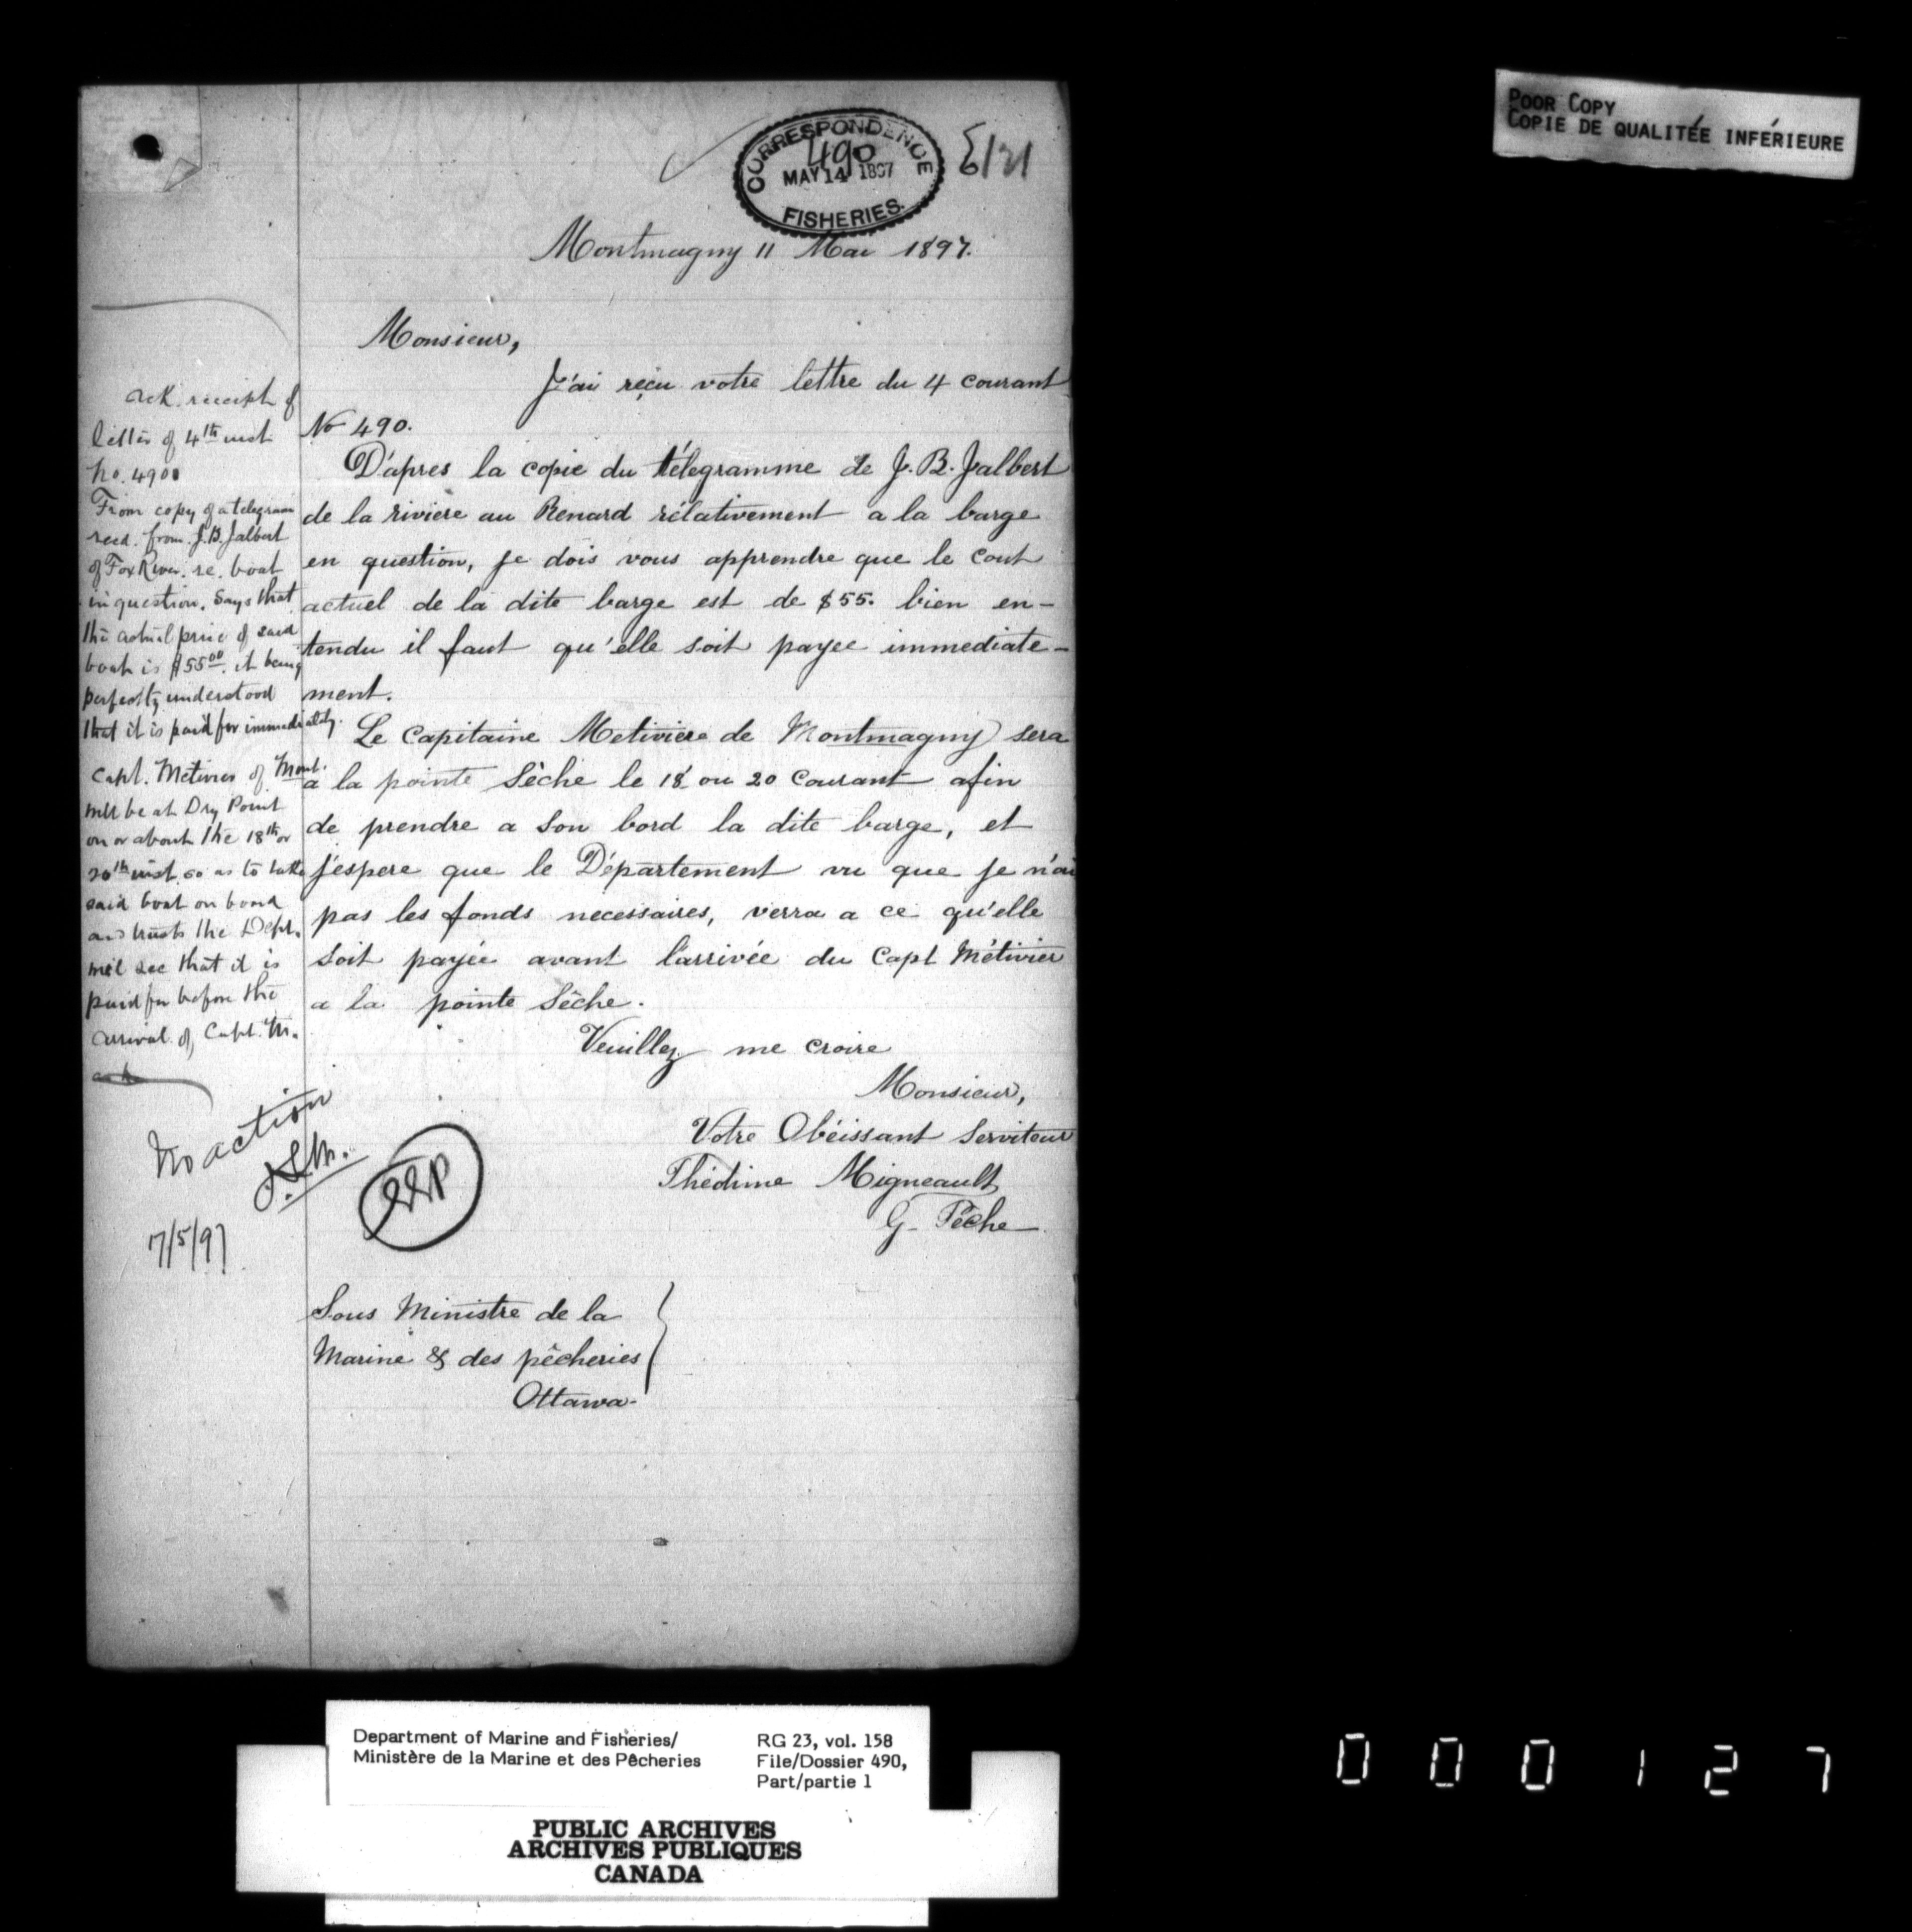 POOR COPY
COPIE DE QUALITÉE INFÉRIEURE
CORRESPONDENCE
490
MAY 14 1897
FISHERIES.
Montmagny 11 Mai 1897.
Monsieur,
J'ai reçu votre lettre du 4 courant
No 490.
D'apres la copie du télegramme de J. B. Jalbert
de la riviere au Renard rélativement a la barge
en question, je dois vous apprendre que le cout
actuel de la dite barge est de $55. bien en-
tendu il faut qu'elle soit payee immediate-
ment.
Le Capitaine Metiviere de Montmagny sera
a la pointe Sèche le 18 ou 20 Courant afin
de prendre a son bord la dite barge, et
j'espere que le Département vu que je n'ai
pas les fonds necessaires, verra a ce qu'elle
soit payée avant l'arrivée du Capt Métivier
a la pointe Sêche.
Veuillez me croire
Monsieur,
Votre Obéissant Serviteur
Thédime Migneault
G- Pêche
Sous Ministre de la
Marine & des pêcheries
Ottawa-
Ack. receipt of
letter of 4th inst
no. 490
From copy of a telegram
recd. from J.B. Jalbert
of Fox River. re. boat
in question. Says that
the actual price of said
boat is $55 00. it being
perfectly understood
that it is paid for immediately.
Capt. Metivier of Mont.
will be at Dry Point
on or about the 18th or
20th inst. so as to take
said boat on board
and trusts the Dept.
will see that it is
paid for before the
arrival of Capt. M.
No action
7/5/97
Department of Marine and Fisheries/
Ministère de la Marine et des Pêcheries
RG 23, vol. 158
File/Dossier 490,
Part/partie 1
PUBLIC ARCHIVES
ARCHIVES PUBLIQUES
CANADA
000127